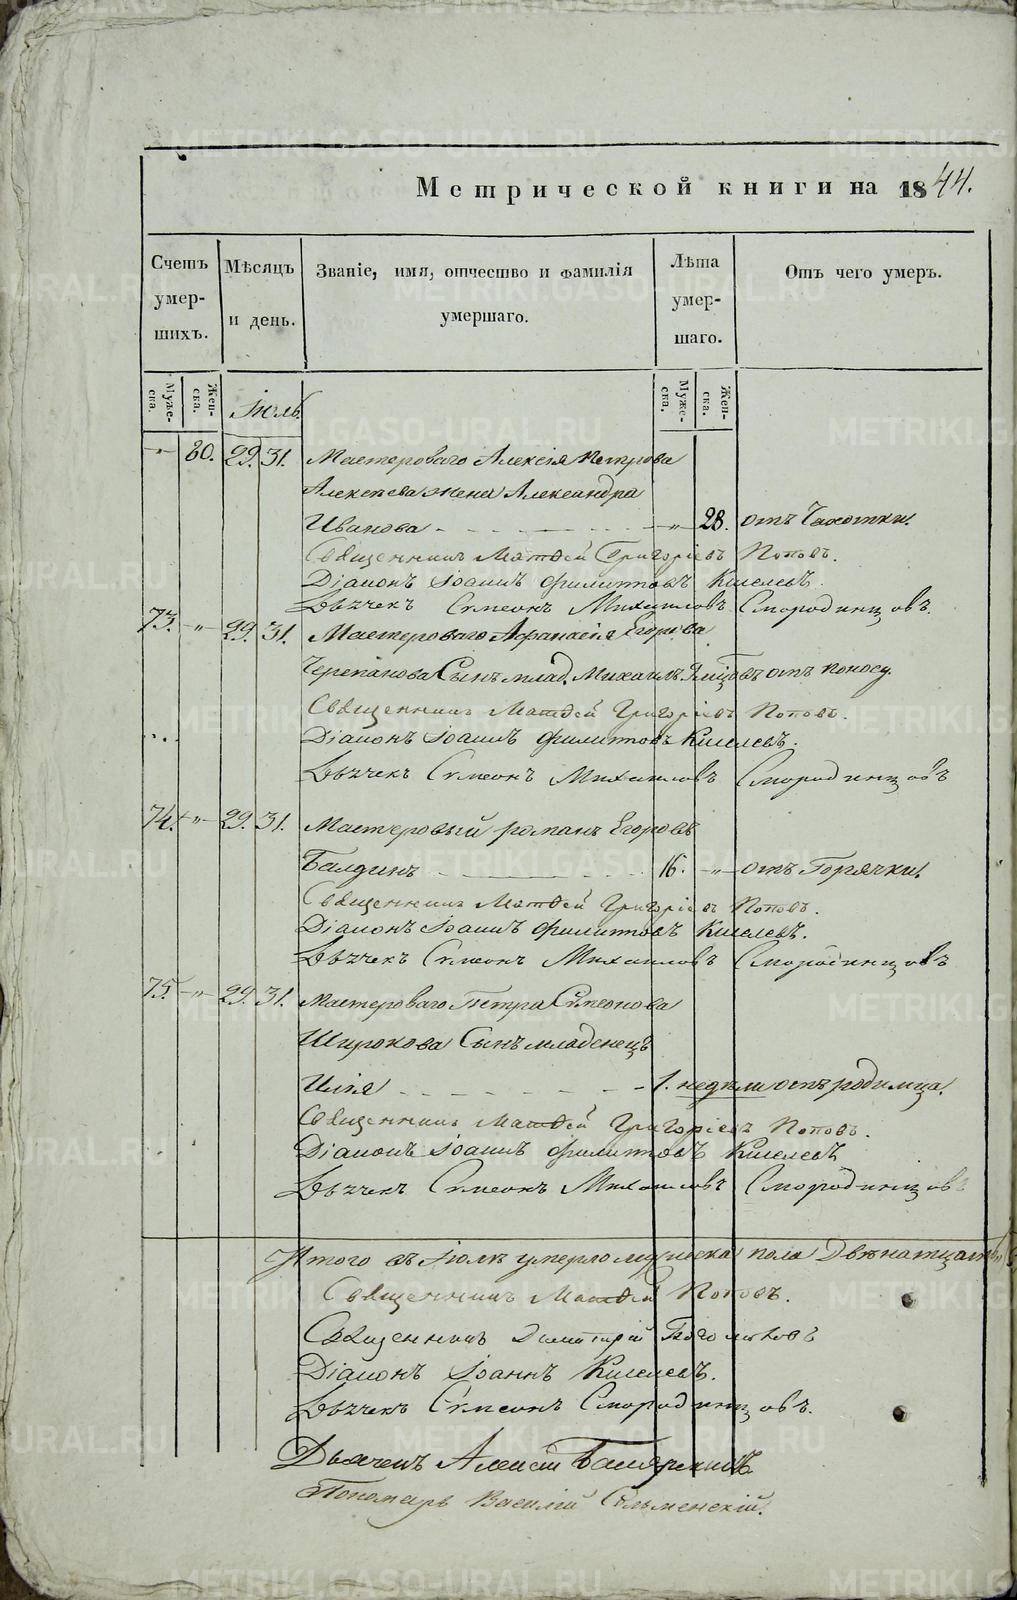 Метрической книги на 1844.
Счетъ умер- шихъ.
Мѣсяцъ и день.
Званіе, имя, отчество и фамилія умершаго.
Лѣта умер- шаго.
Отъ чего умеръ.
Муже- ска.
Жен- ска.
Муже- ска.
Жен- ска.
Іюль.
80. 29. 31. Мастероваго Алексѣя Петрова
Алексѣева жена Александра
Иванова 28. отъ Чахотки.
Священникъ Матѳей Григоріевъ Поповъ.
Діаконъ Іоаннъ Филиповъ Киселевъ.
Дьячекъ Сѵмеонъ Михаиловъ Смородинцовъ.
73. 29. 31. Мастероваго Афанасія Егорова
Черепанова Сынъ млад. Михаилъ отъ поносу.
Священникъ Матѳей Григоріевъ Поповъ.
Діаконъ Іоаннъ Филиповъ Киселевъ.
Дьячекъ Сѵмеонъ Михаиловъ Смородинцовъ
74. 29. 31. Мастеровый романъ Егоровъ
Балдинъ 16. отъ Горячки.
Священникъ Матѳей Григоріевъ Поповъ.
Діаконъ Іоаннъ Филиповъ Киселевъ.
Дьячекъ Сѵмеонъ Михаиловъ Смородинцовъ
75. 29. 31. Мастероваго Петра Симеонова
Широкова Сынъ младенецъ
Илія 1. недѣли отъ родимца.
Священникъ Матѳей Григоріевъ Поповъ.
Діаконъ Іоаннъ Филиповъ Киселевъ
Дьячекъ Сѵмеонъ Михаиловъ Смородинцовъ
Итого въ Іюлѣ умерло мужеска пола Двѣнатцать
Священникъ Матѳей Поповъ.
Священникъ Димитрій Боголюбовъ
Діаконъ Іоаннъ Киселевъ.
Дьячекъ Сѵмеонъ Смородинцовъ.
Дьячекъ Алексій
Пономарь Василій
METRIKI.GASO-URAL.RU